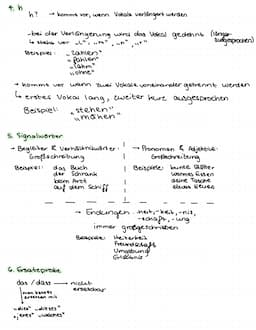 4. h
h? → kommt vor, wenn Vokale verlängert werden
- bei der Verlängerung wird das Vokal gedehnt (länger ausgesprochen)
→ steht vor „l“, „m“, „n“, „r“
Beispiel: „zahlen“
„fehlen“
„lahm“
„ohne“
→ kommt vor wenn zwei Vokale voneinander getrennt werden
↳ erstes Vokal lang, zweiter kurz ausgesprochen
Beispiel: „stehen“
„mähen“
5. Signalwörter
→ Begleiter & Verhältniswörter
Großschreibung
Beispiel: das Buch
der Schrank
beim Arzt
auf dem Schiff
→ Pronomen & Adjektive
Großschreibung
Beispiele: bunte Blätter
warmes Essen
deine Tasche
etwas Neues
↳ Endungen -heit, -keit, -nis,
-schaft, -ung
immer großgeschrieben
Beispiele: Heiterkeit
Freundschaft
Umgebung
6. Ersatzprobe
das / dass → nicht
ersetzbar
„dies“, „dieses“
„jenes“, „welches“